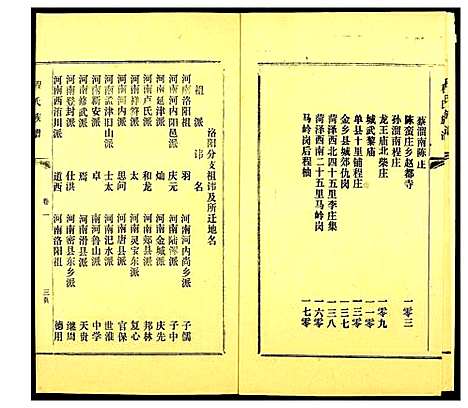 蔡溜南陈止 一零三
陈蛮庄乡赵都寺
孙溜南程庄
龙王庙北柴庄 一零九
城武黎庙 一一零
单县十里铺程庄 一三一
金乡县城郊仇岗 一三七
菏泽西北四十五里李庄集 一三八
菏泽西南二十五里马岭岗 一六零
马岭岗后程楠 一七零
洛阳分支祖讳及所迁地名
祖派 讳名
河南洛阳祖 羽 河南河内尚乡派 子儒
河南河内阳邑派 庆元 河南陆浑派 子中
河南延津派 灿 河南金城派 庆先
河南卢氏派 和龙 河南郏县派 邦林
河南祥符派 太 河南灵宝东派 复心
河南孟津派 思问 河南唐县派 官保
河南孟津旧山派 士太 河南汜水派 世淮
河南新安派 卓 河南鲁山派 中学
河南修武派 焉 河南滑县派 天贵
河南登封派 仕洪 河南密县东乡派 继周
河南西洧川派 道西 河南洛阳祖 德用
程氏族谱 卷一 三